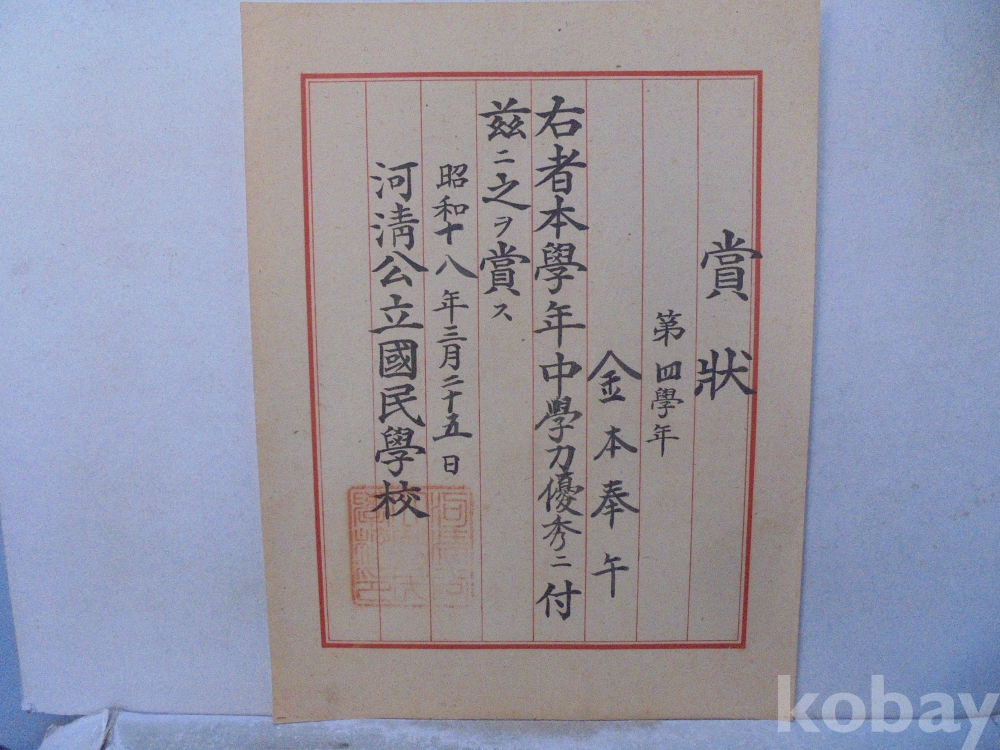 賞狀
第四學年
金本奉午
右者本學年中學力優秀ニ付
玆ニ之ヲ賞ス
昭和十八年三月二十五日
河淸公立國民學校
kobay